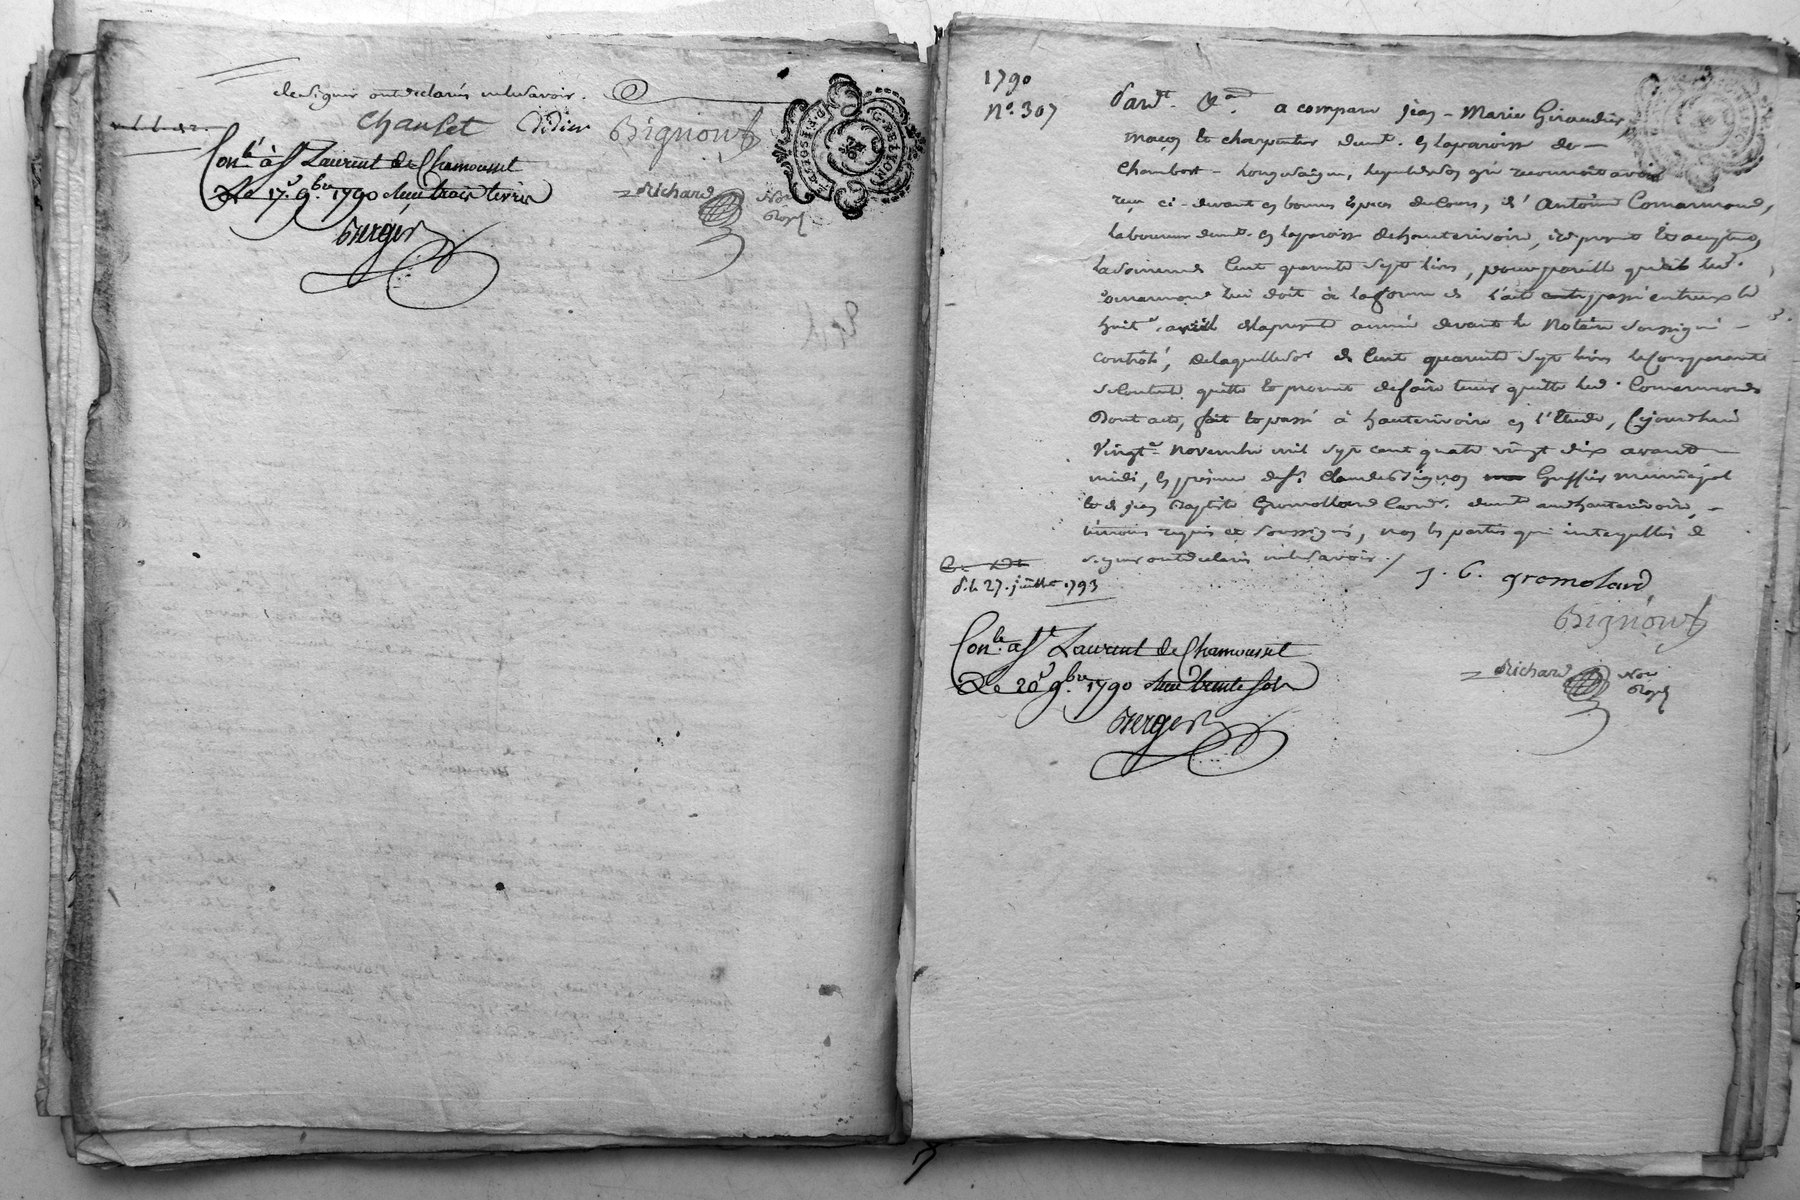 de signer ont declarés ne le savoir.
Chanset Didier Bignont
Con.lé à St Laurent de Chamousset
Le 17e 9bre 1790 Reçu trois livres
Berger
Richard Nore Royal
GEN. DE LYON
1790
N°. 307
Pard.t &a. a comparu jean-Marie Giraudier
macon et charpentier demt. en la paroisse de
Chambost-Longessaigne, lequel de gré reconnoit avoir
reçu ci-devant en bonnes especes de cours, d'Antoine Comarmond,
laboureur demt. en la paroisse de hauterivoire, ici present et acceptant,
la somme de Cent quarante sept livres, pour pareille que led.
Comarmond lui doit à la forme de l'acte passé entr'eux le
huit avril de la presente année devant le Notaire soussigné
controlé, de laquelle somme de Cent quarante sept livres le comparant
se contente, quitte et promet de faire tenir quitte led. Comarmond
Dont acte, fait et passé à hauterivoire en l'Etude, Cejourd'hui
Vingt Novembre mil sept cent quatre vingt dix avant
midi, en présence de Sr. Claude Bignon Greffier municipal
et de jean Baptiste Gromollard demt. aud. hauterivoire,
témoins requis et soussignés, non les parties qui interpellées de
signer ont declarés ne le savoir.
J. B. gromolard
d. le 27. juillet 1793
Bignont
Con.lé à St Laurent de Chamousset
Le 20e 9bre 1790 Reçu trente sols
Richard Nore Royal
Berger